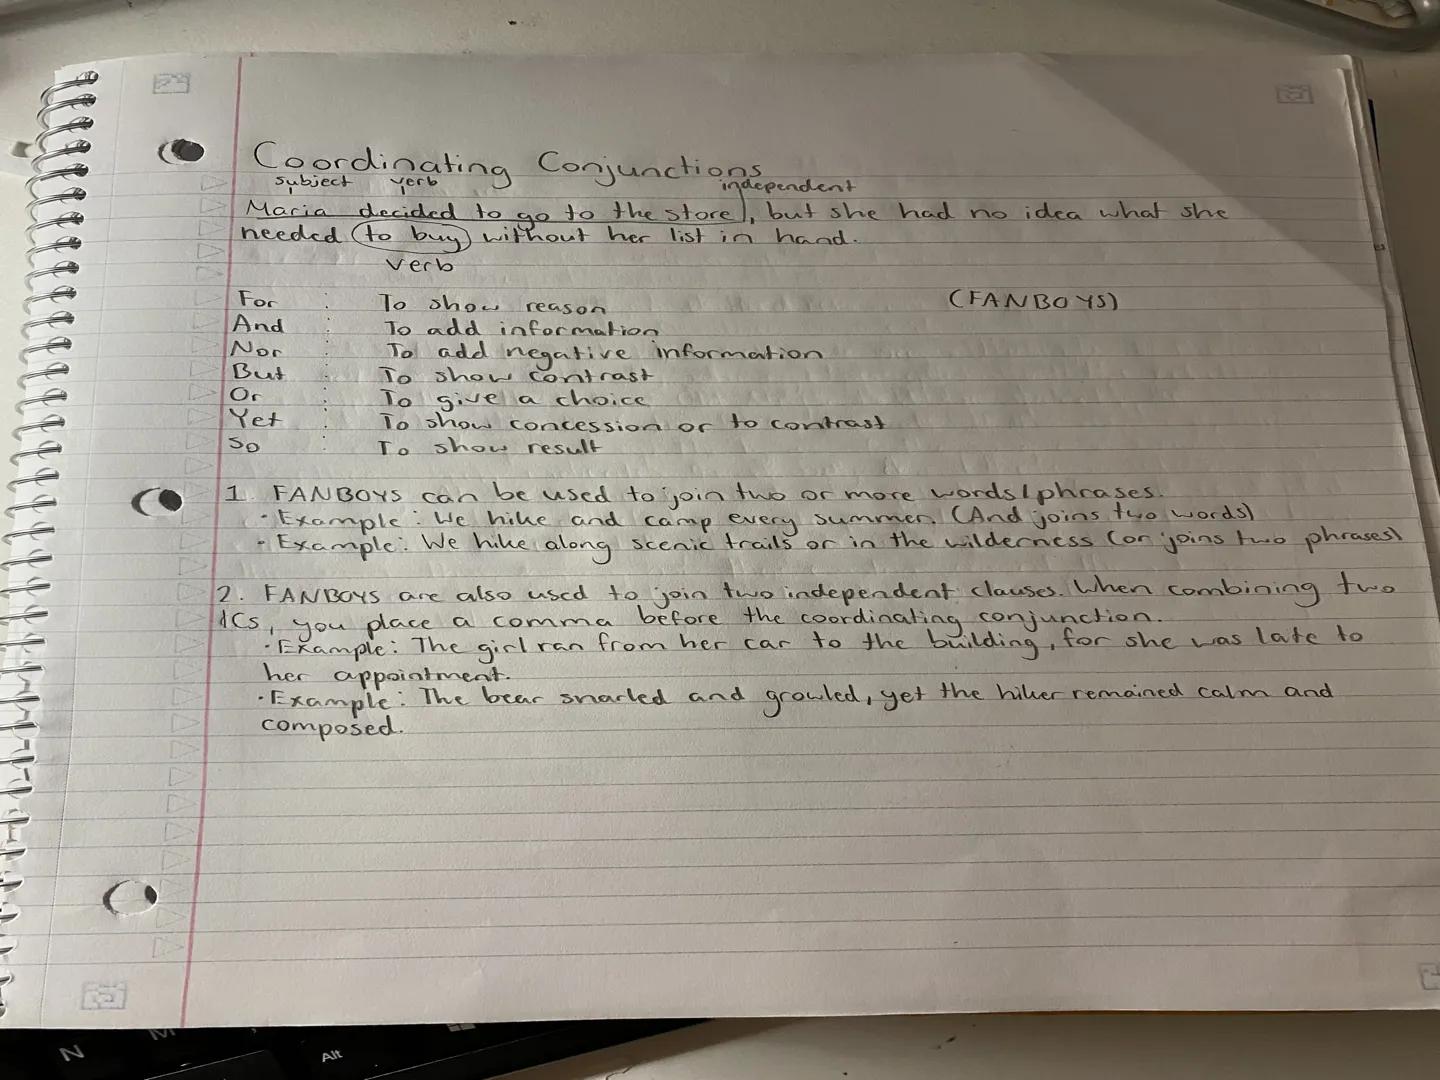 Coordinating Conjunctions
subject verb independent
Maria decided to go to the store), but she had no idea what she
needed (to buy) without her list in hand.
verb
For : To show reason (FANBOYS)
And : To add information
Nor : To add negative information
But : To show contrast
Or : To give a choice
Yet : To show concession or to contrast
So : To show result
1. FANBOYS can be used to join two or more words/phrases.
· Example: We hike and camp every summer. (And joins two words)
· Example: We hike along scenic trails or in the wilderness (or joins two phrases)
2. FANBOYS are also used to join two independent clauses. When combining two
ICs, you place a comma before the coordinating conjunction.
· Example: The girl ran from her car to the building, for she was late to
her appointment.
· Example: The bear snarled and growled, yet the hiker remained calm and
composed.
N M , Alt